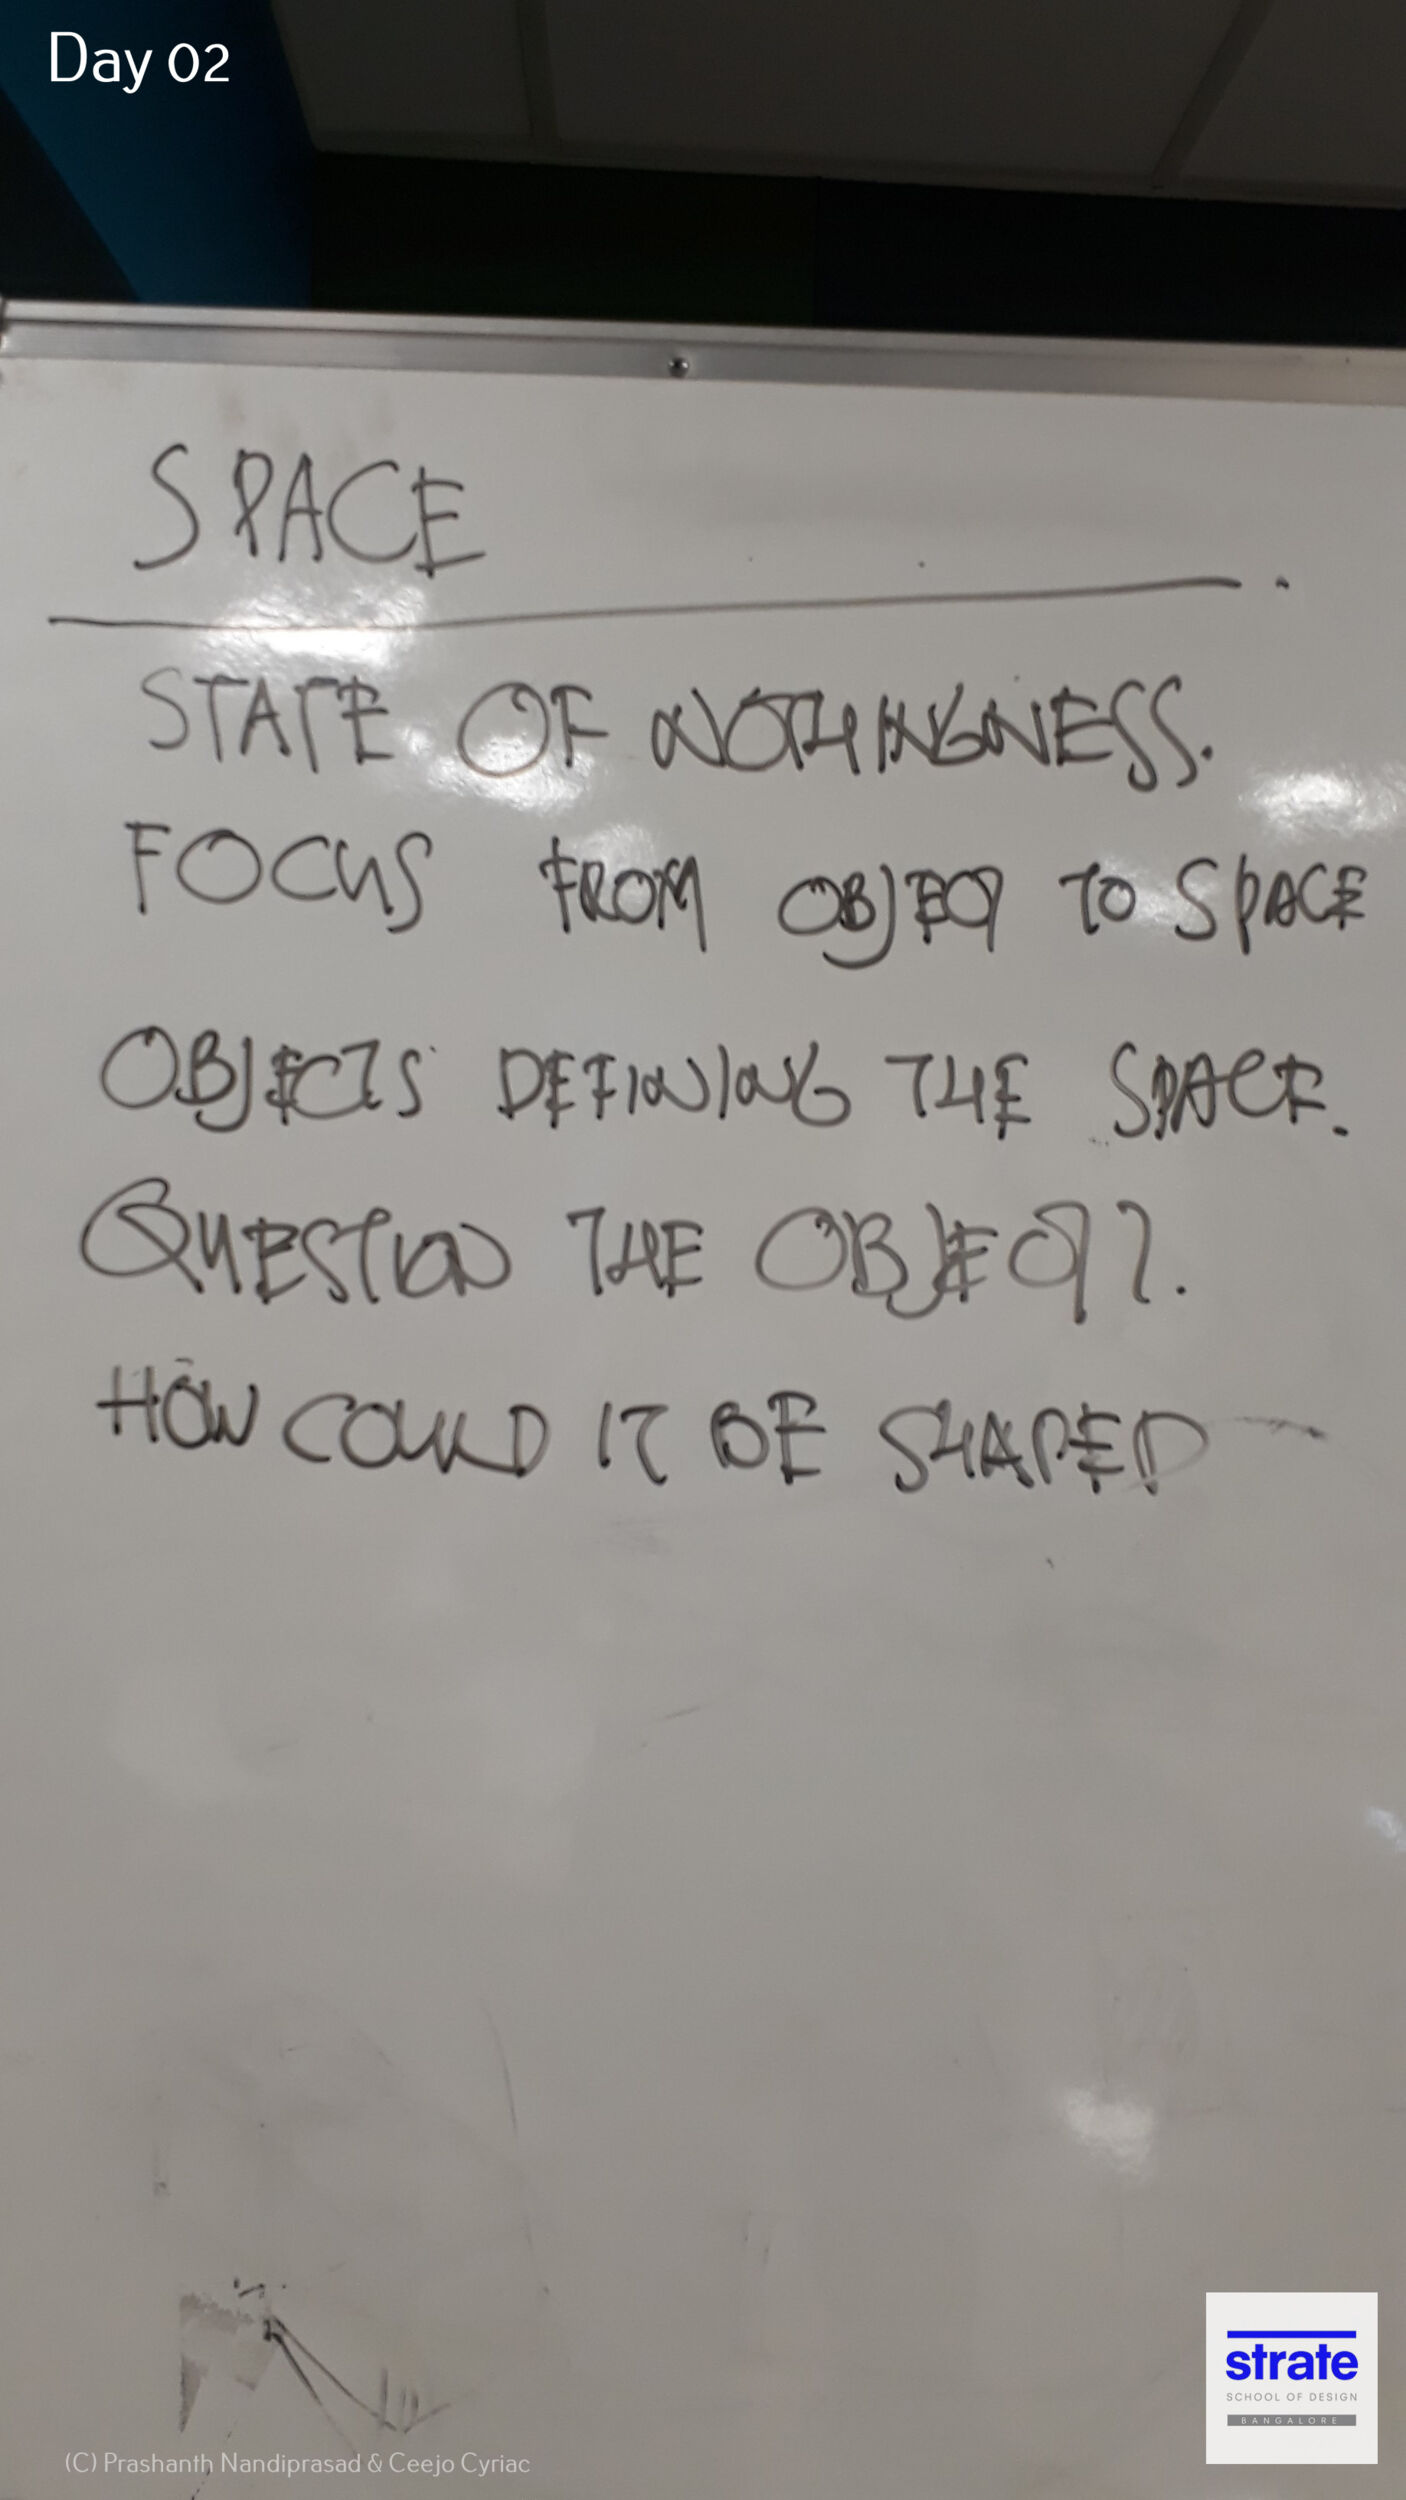 Day 02
SPACE
STATE OF NOTHINGNESS.
FOCUS FROM OBJECT TO SPACE
OBJECTS DEFINING THE SPACE.
QUESTION THE OBJECT?.
HOW COULD IT BE SHAPED
strate
SCHOOL OF DESIGN
BANGALORE
(C) Prashanth Nandiprasad & Ceejo Cyriac